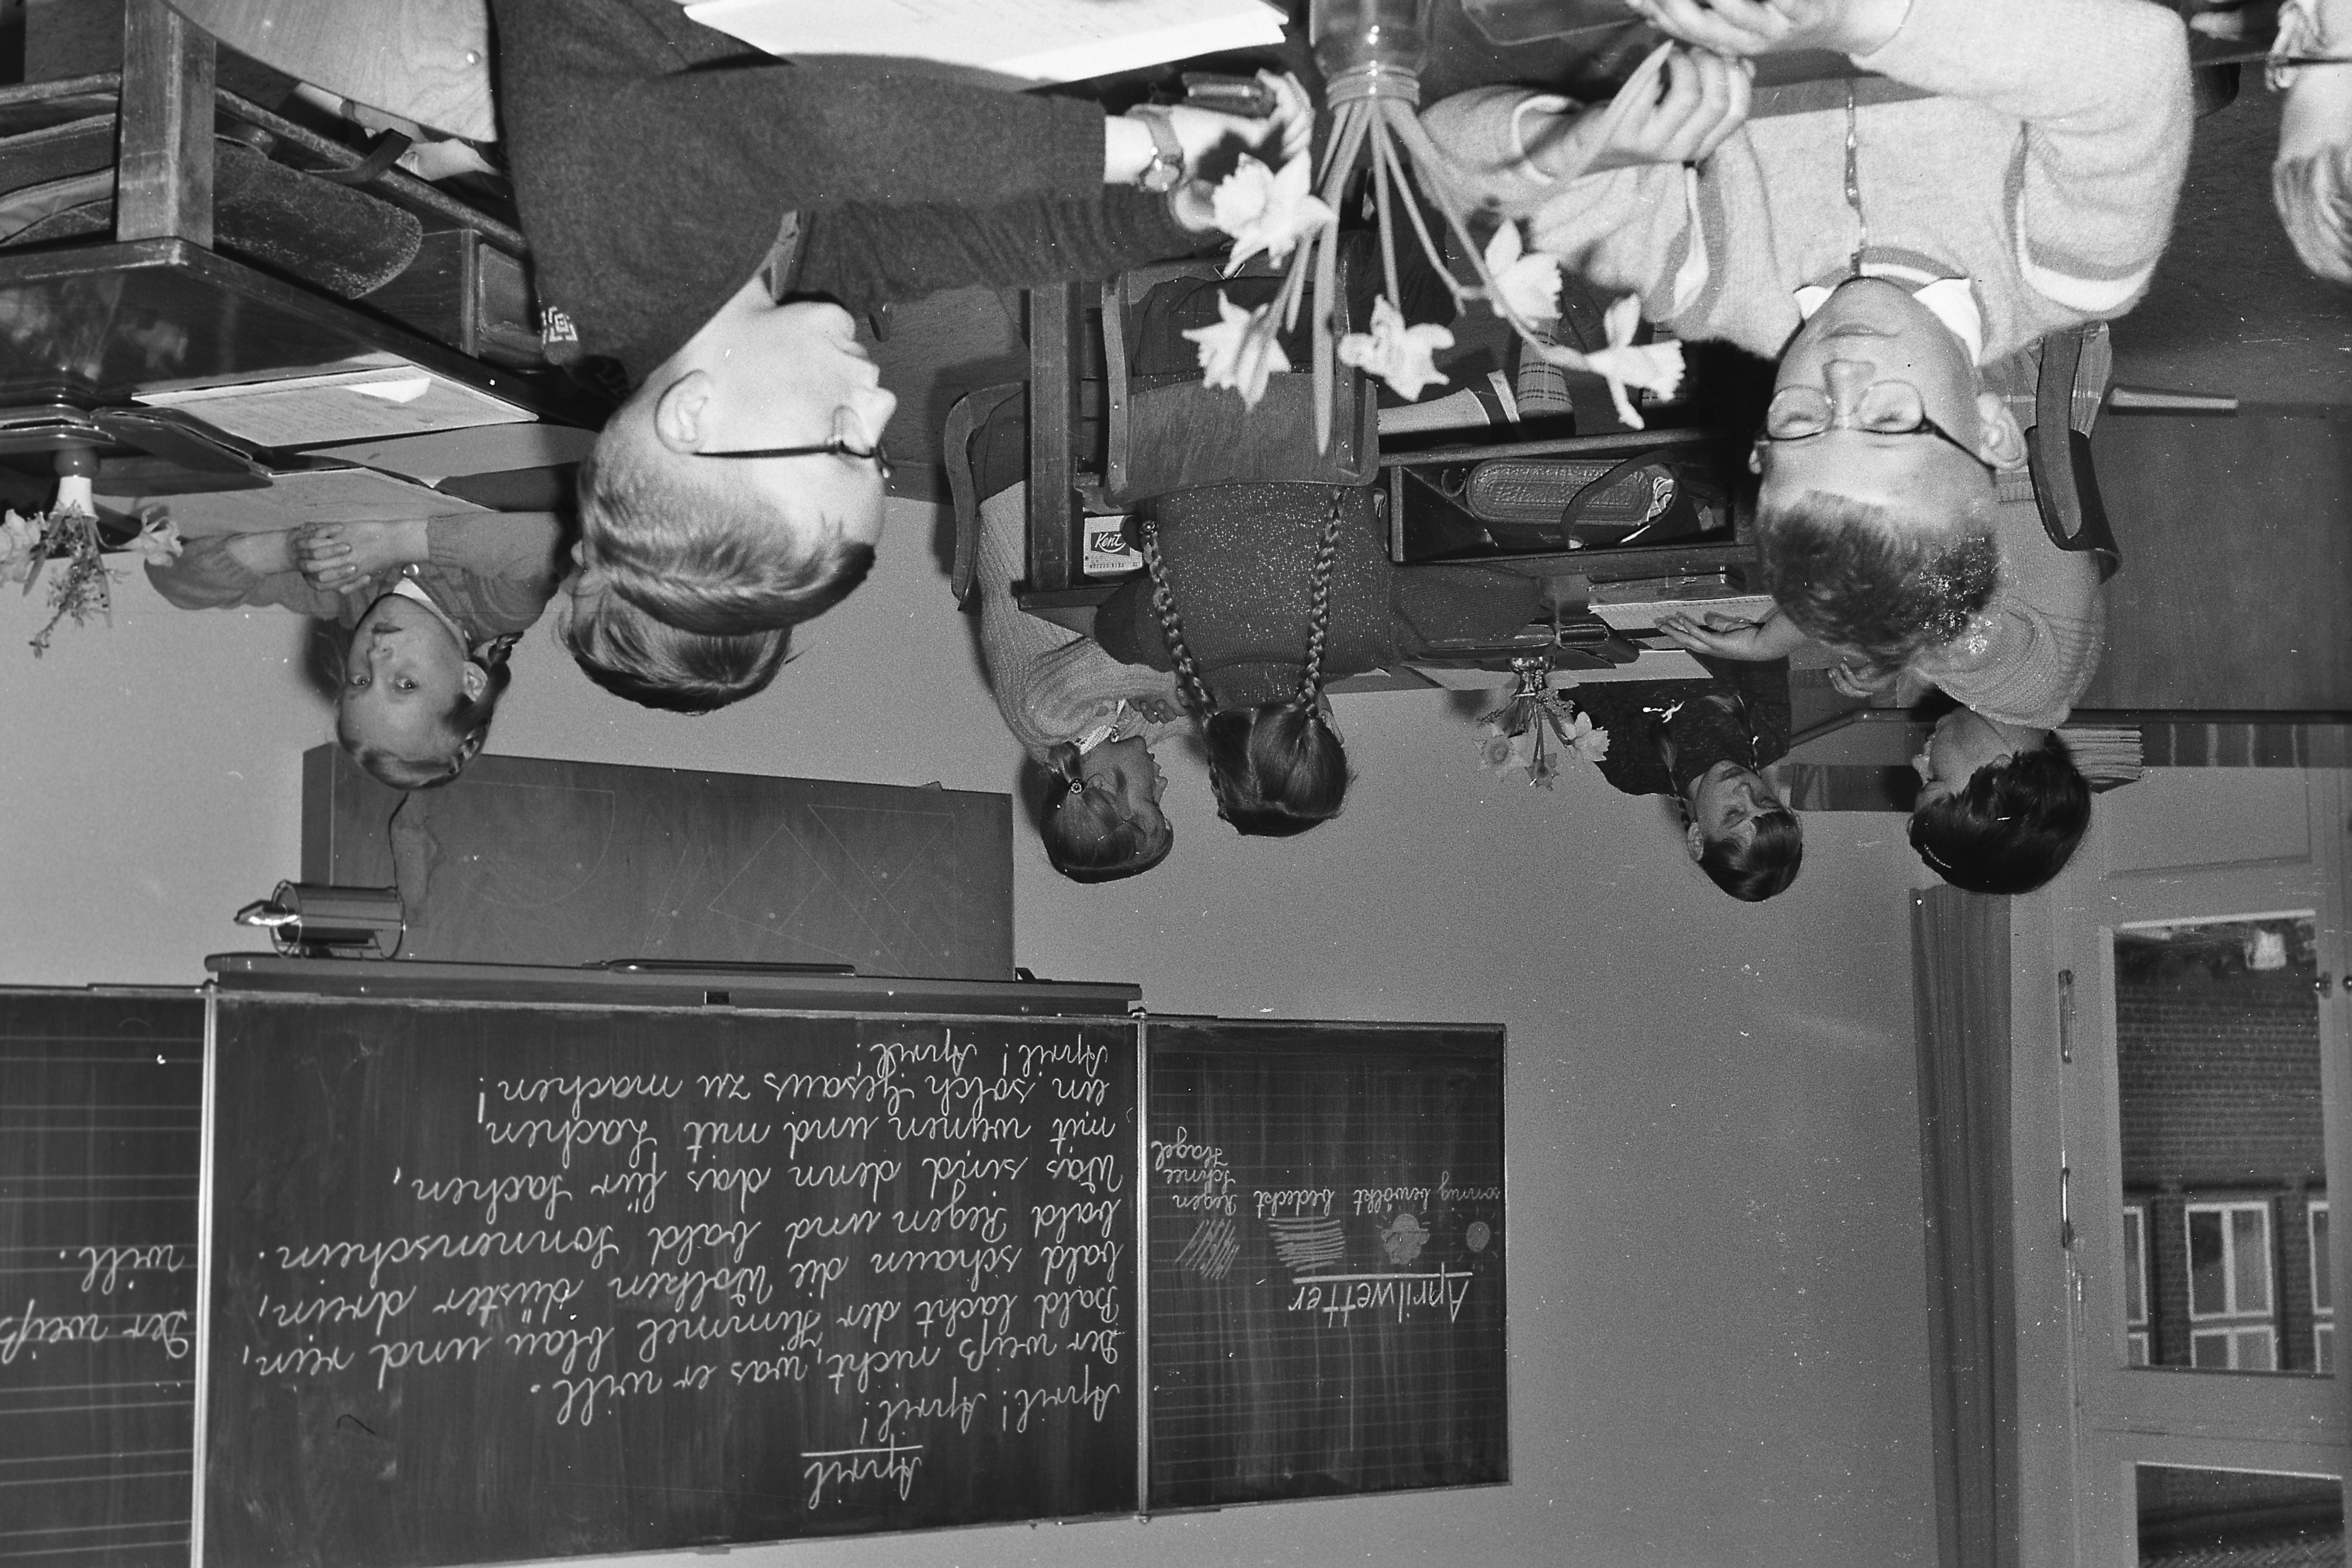 Aprilwetter
sonnig bewölkt bedeckt Regen
Schnee
Hagel
April
April! April!
Der weiß nicht, was er will.
Bald lacht der Himmel blau und rein,
bald schaun die Wolken düster drein,
bald Regen und bald Sonnenschein.
Was sind denn das für Sachen,
mit weinen und mit Lachen
ein solch Gesaus zu machen!
April! April!
Der weiß
will.
Kent